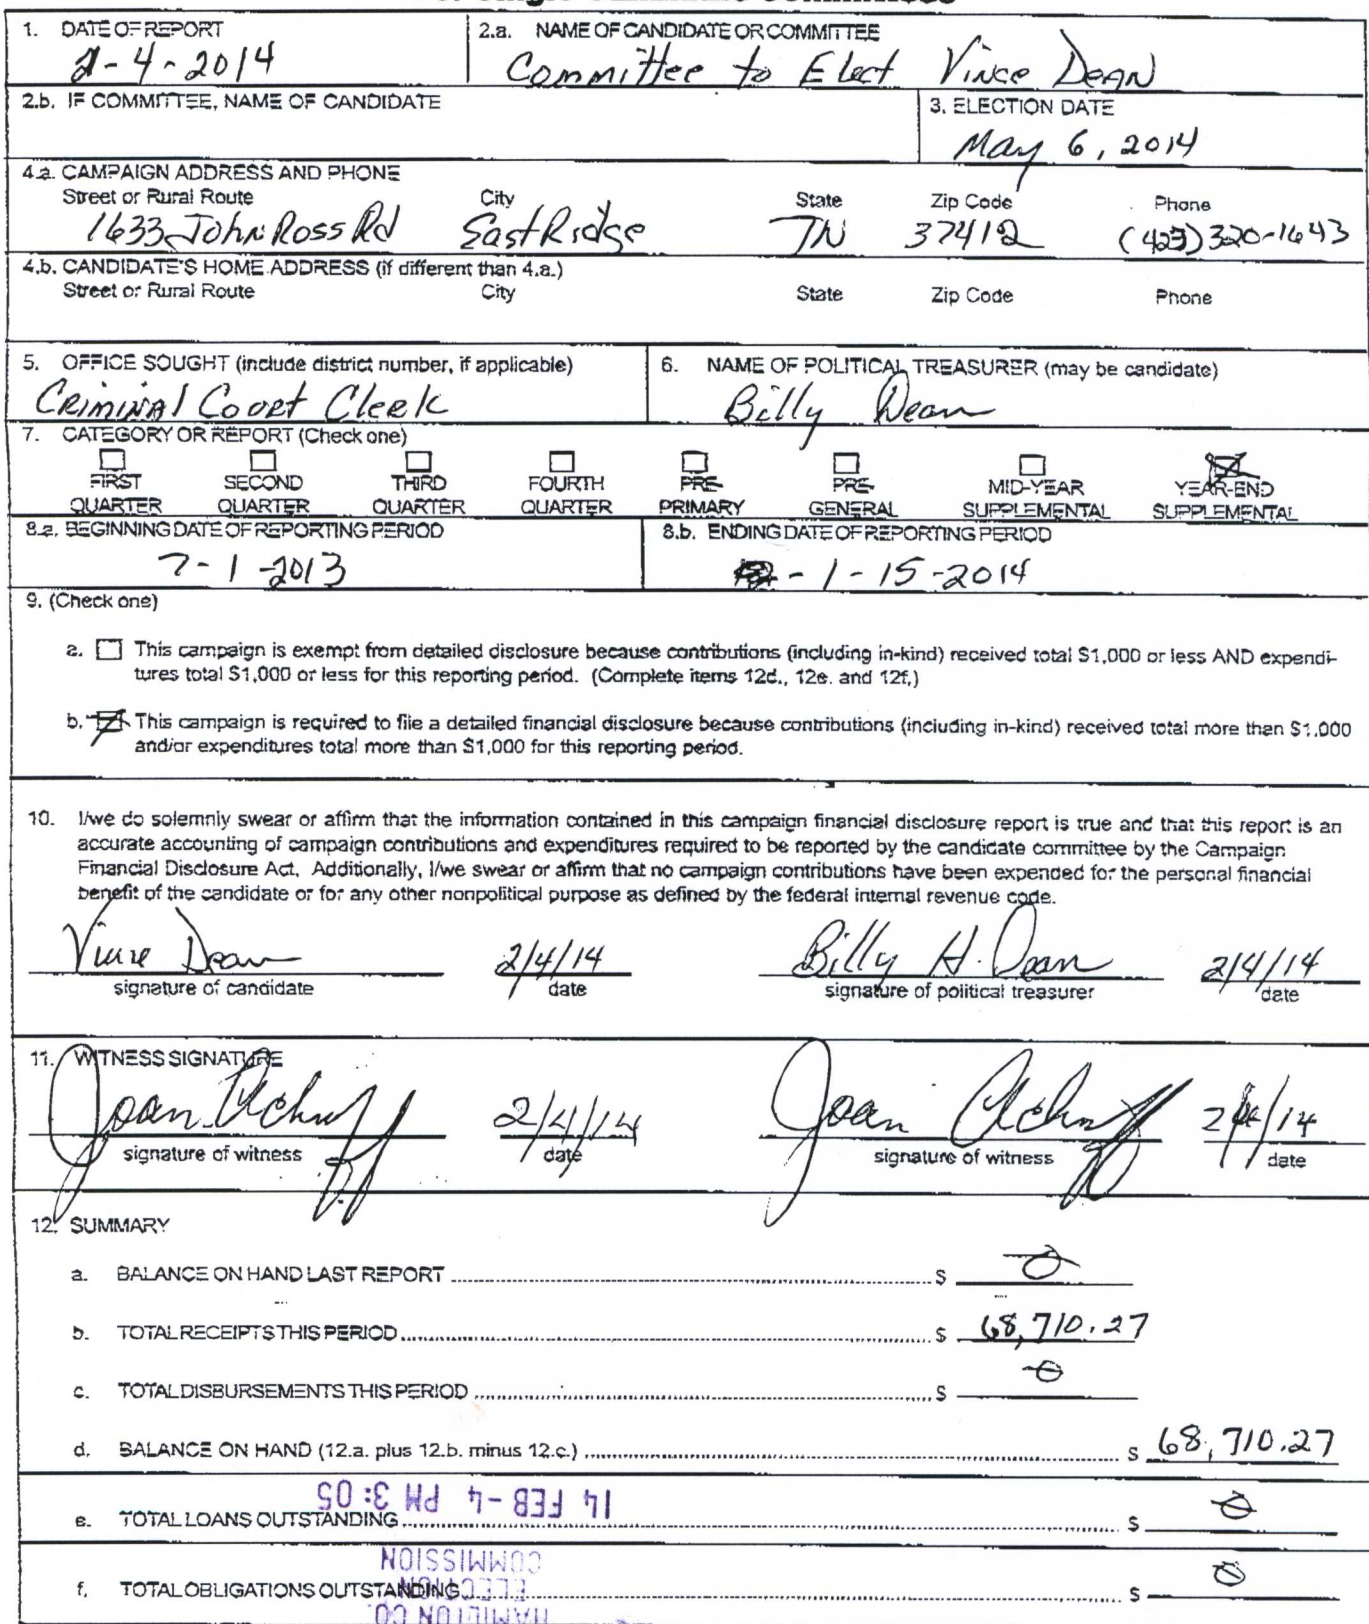 1. DATE OF REPORT
2-4-2014
2.a. NAME OF CANDIDATE OR COMMITTEE
Committee to Elect Vince Dean
2.b. IF COMMITTEE, NAME OF CANDIDATE
3. ELECTION DATE
May 6, 2014
4.a. CAMPAIGN ADDRESS AND PHONE
Street or Rural Route City State Zip Code Phone
1633 John Ross Rd East Ridge TN 37412 (423) 320-1643
4.b. CANDIDATE'S HOME ADDRESS (if different than 4.a.)
Street or Rural Route City State Zip Code Phone
5. OFFICE SOUGHT (include district number, if applicable)
Criminal Court Clerk
6. NAME OF POLITICAL TREASURER (may be candidate)
Billy Dean
7. CATEGORY OR REPORT (Check one)
FIRST QUARTER
SECOND QUARTER
THIRD QUARTER
FOURTH QUARTER
PRE-PRIMARY
PRE-GENERAL
MID-YEAR SUPPLEMENTAL
YEAR-END SUPPLEMENTAL
8.a. BEGINNING DATE OF REPORTING PERIOD
7-1-2013
8.b. ENDING DATE OF REPORTING PERIOD
- 1-15-2014
9. (Check one)
a. This campaign is exempt from detailed disclosure because contributions (including in-kind) received total $1,000 or less AND expendi-
tures total $1,000 or less for this reporting period. (Complete items 12d., 12e. and 12f.)
b. This campaign is required to file a detailed financial disclosure because contributions (including in-kind) received total more than $1,000
and/or expenditures total more than $1,000 for this reporting period.
10. I/we do solemnly swear or affirm that the information contained in this campaign financial disclosure report is true and that this report is an
accurate accounting of campaign contributions and expenditures required to be reported by the candidate committee by the Campaign
Financial Disclosure Act. Additionally, I/we swear or affirm that no campaign contributions have been expended for the personal financial
benefit of the candidate or for any other nonpolitical purpose as defined by the federal internal revenue code.
Vince Dean 2/4/14 Billy H. Dean 2/4/14
signature of candidate date signature of political treasurer date
11. WITNESS SIGNATURE
Joan 2/4/14 Joan 2/4/14
signature of witness date signature of witness date
12. SUMMARY
a. BALANCE ON HAND LAST REPORT $ 0
b. TOTAL RECEIPTS THIS PERIOD $ 68,710.27
c. TOTAL DISBURSEMENTS THIS PERIOD $ 0
d. BALANCE ON HAND (12.a. plus 12.b. minus 12.c.) $ 68,710.27
14 FEB -4 PM 3:05
e. TOTAL LOANS OUTSTANDING $ 0
COMMISSION
f. TOTAL OBLIGATIONS OUTSTANDING $ 0
ELECTION
HAMILTON CO.